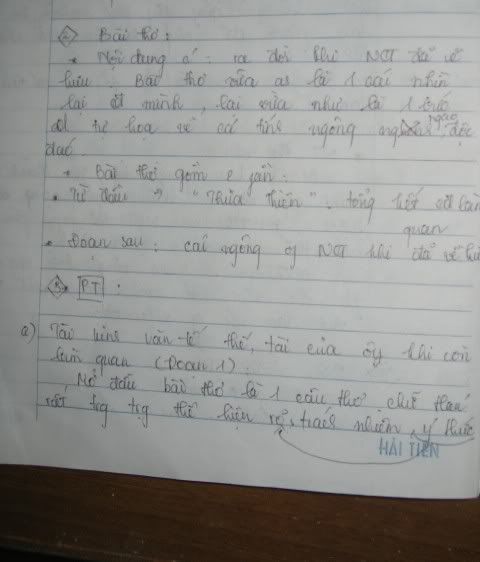 Bài thơ:
* Nội dung : ra đời khi NCT đã về
hưu. Bài thơ vừa là 1 cái nhìn
lại mình, lại vừa như là 1 bức
tự họa về cá tính ngông ngạo, độc
đáo.
* Bài thơ gồm 2 phần:
* Từ đầu → "Thừa Thiên". tổng kết làm
quan
* Đoạn sau: cái ngông NCT khi đã về
PT.
a) thế, tài của khi còn
làm quan (Đoạn 1).
Mở đầu bài thơ là 1 câu thơ chữ Hán
rất trg trg thể hiện rõ, trách nhiệm, ý thức
HẢI TIẾN